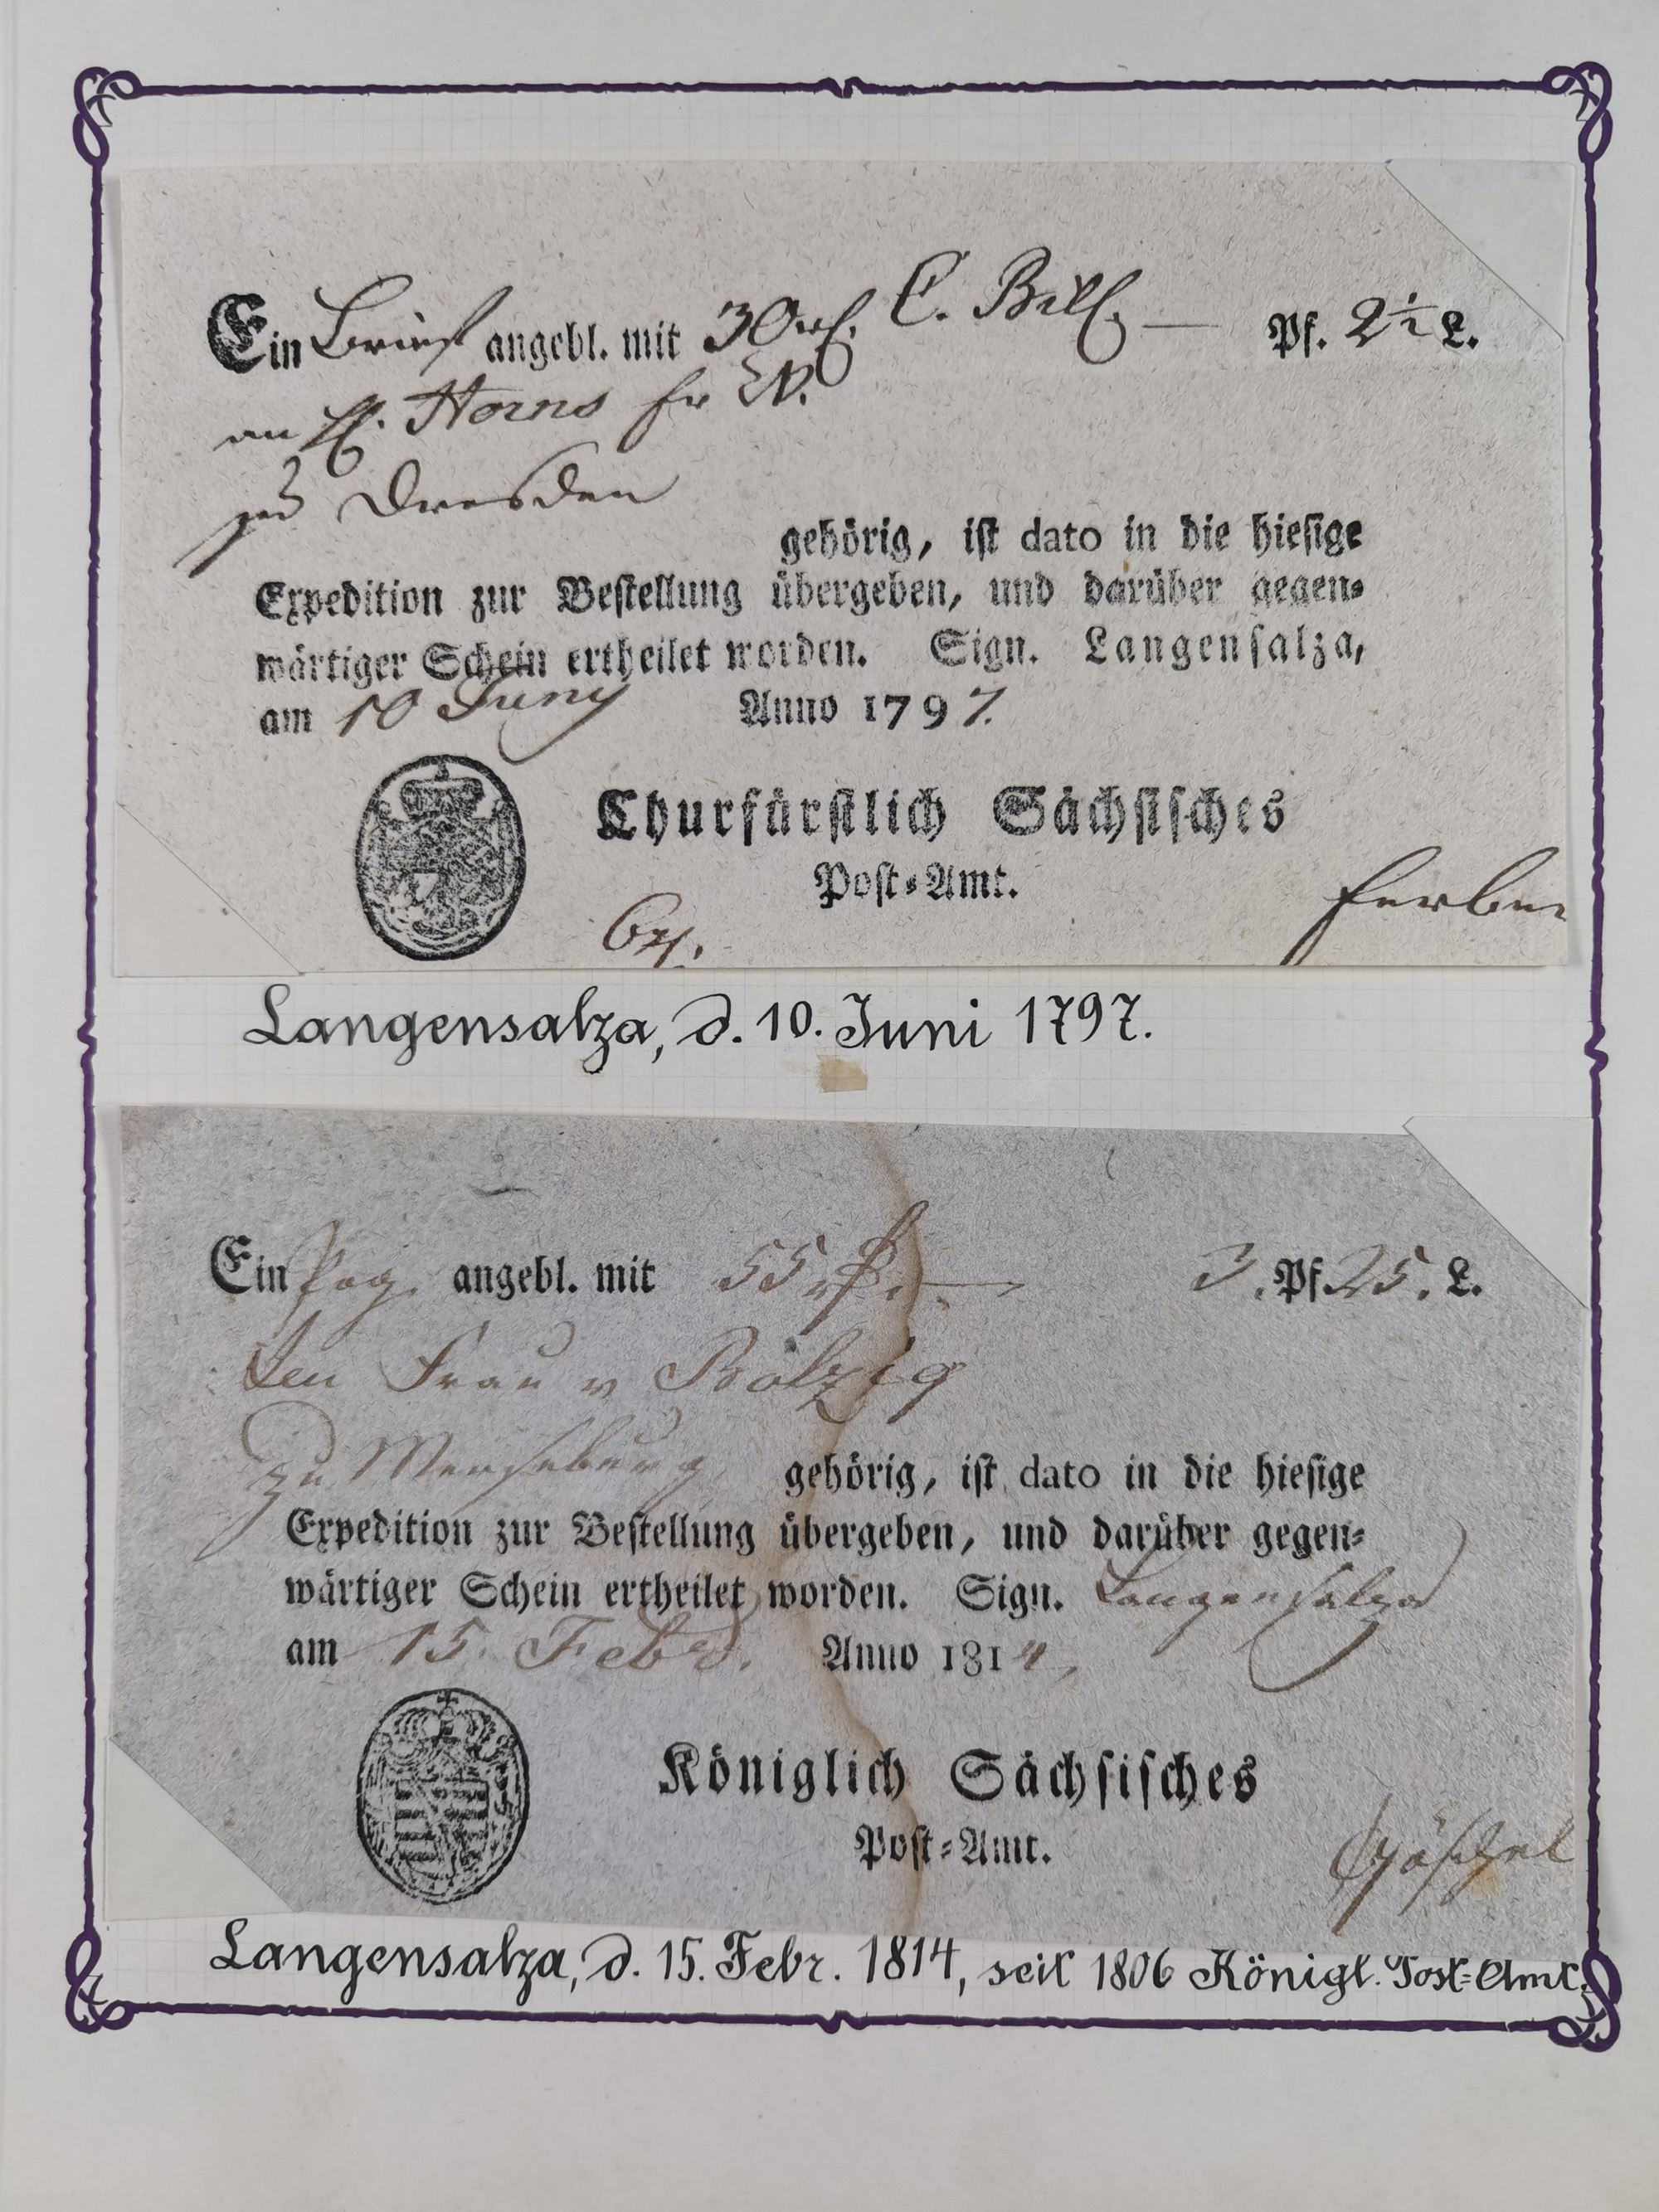 Ein Brief angebl. mit 30 rf. C. Bill. — Pf. 2½ L.
an H. Horns
zu Dresden
gehörig, iſt dato in die hieſige
Expedition zur Beſtellung übergeben, und darüber gegen-
wärtiger Schein ertheilet worden. Sign. Langenſalza,
am 10 Juny Anno 1797.
Churfürſtlich Sächſiſches
Poſt-Amt.
Langensalza, d. 10. Juni 1797.
Ein Paq. angebl. mit 55 rf. — 3. Pf 25. L.
Frau v Bölzig
zu Merseburg gehörig, iſt dato in die hieſige
Expedition zur Beſtellung übergeben, und darüber gegen-
wärtiger Schein ertheilet worden. Sign. Langenſalza
am 15. Febr. Anno 1814,
Königlich Sächſiſches
Poſt-Amt.
Langensalza, d. 15. Febr. 1814, seit 1806 Königl. Post-Amt.